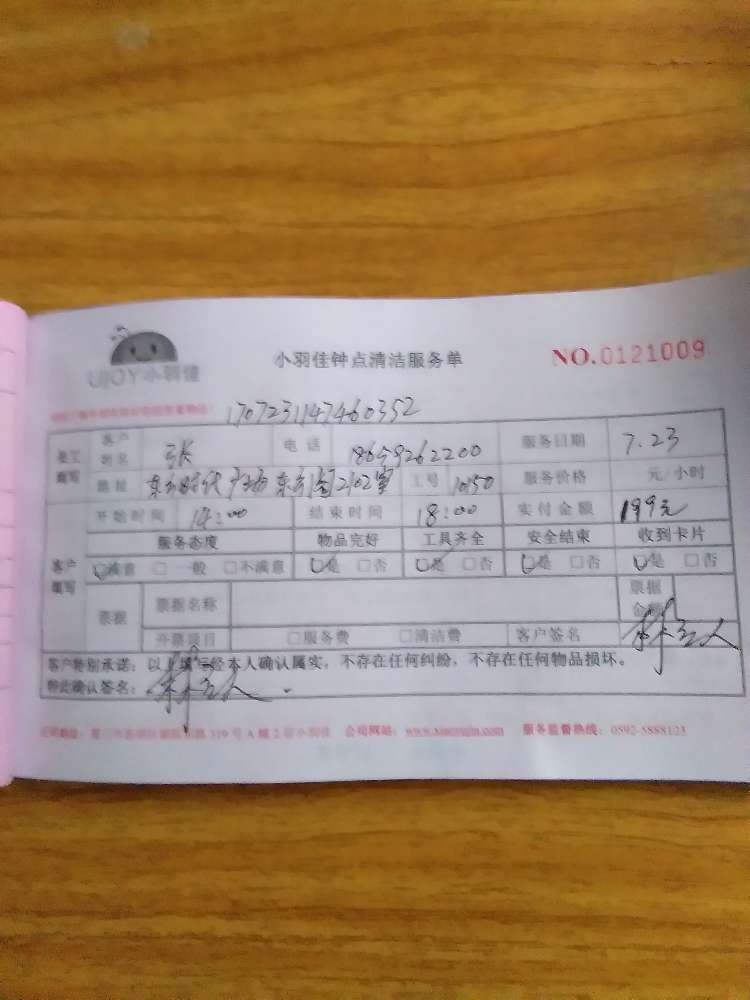 UJOY小羽佳
小羽佳钟点清洁服务单
NO.0121009
1707231147460352
员工填写 客户姓名 张 电话 18659262200 服务日期 7.23
地址 2102室 工号 1050 服务价格 元/小时
客户填写 开始时间 14:00 结束时间 18:00 实付金额 199元
服务态度 物品完好 工具齐全 安全结束 收到卡片
满意 一般 不满意 是 否 是 否 是 否 是 否
票据 票据名称 票据金额
开票项目 服务费 清洁费 客户签名
客户特别承诺:以上填写经本人确认属实,不存在任何纠纷,不存在任何物品损坏。
特此确认签名:
319号A幢2层小羽佳 公司网站: 服务监督热线:0592-5888123